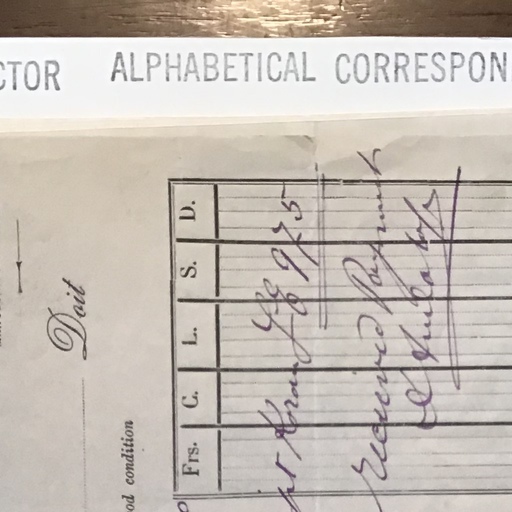 Doit
od condition
Frs. C. L. S. D.
Koran £E 975
Received Payment
CTOR ALPHABETICAL CORRESPON